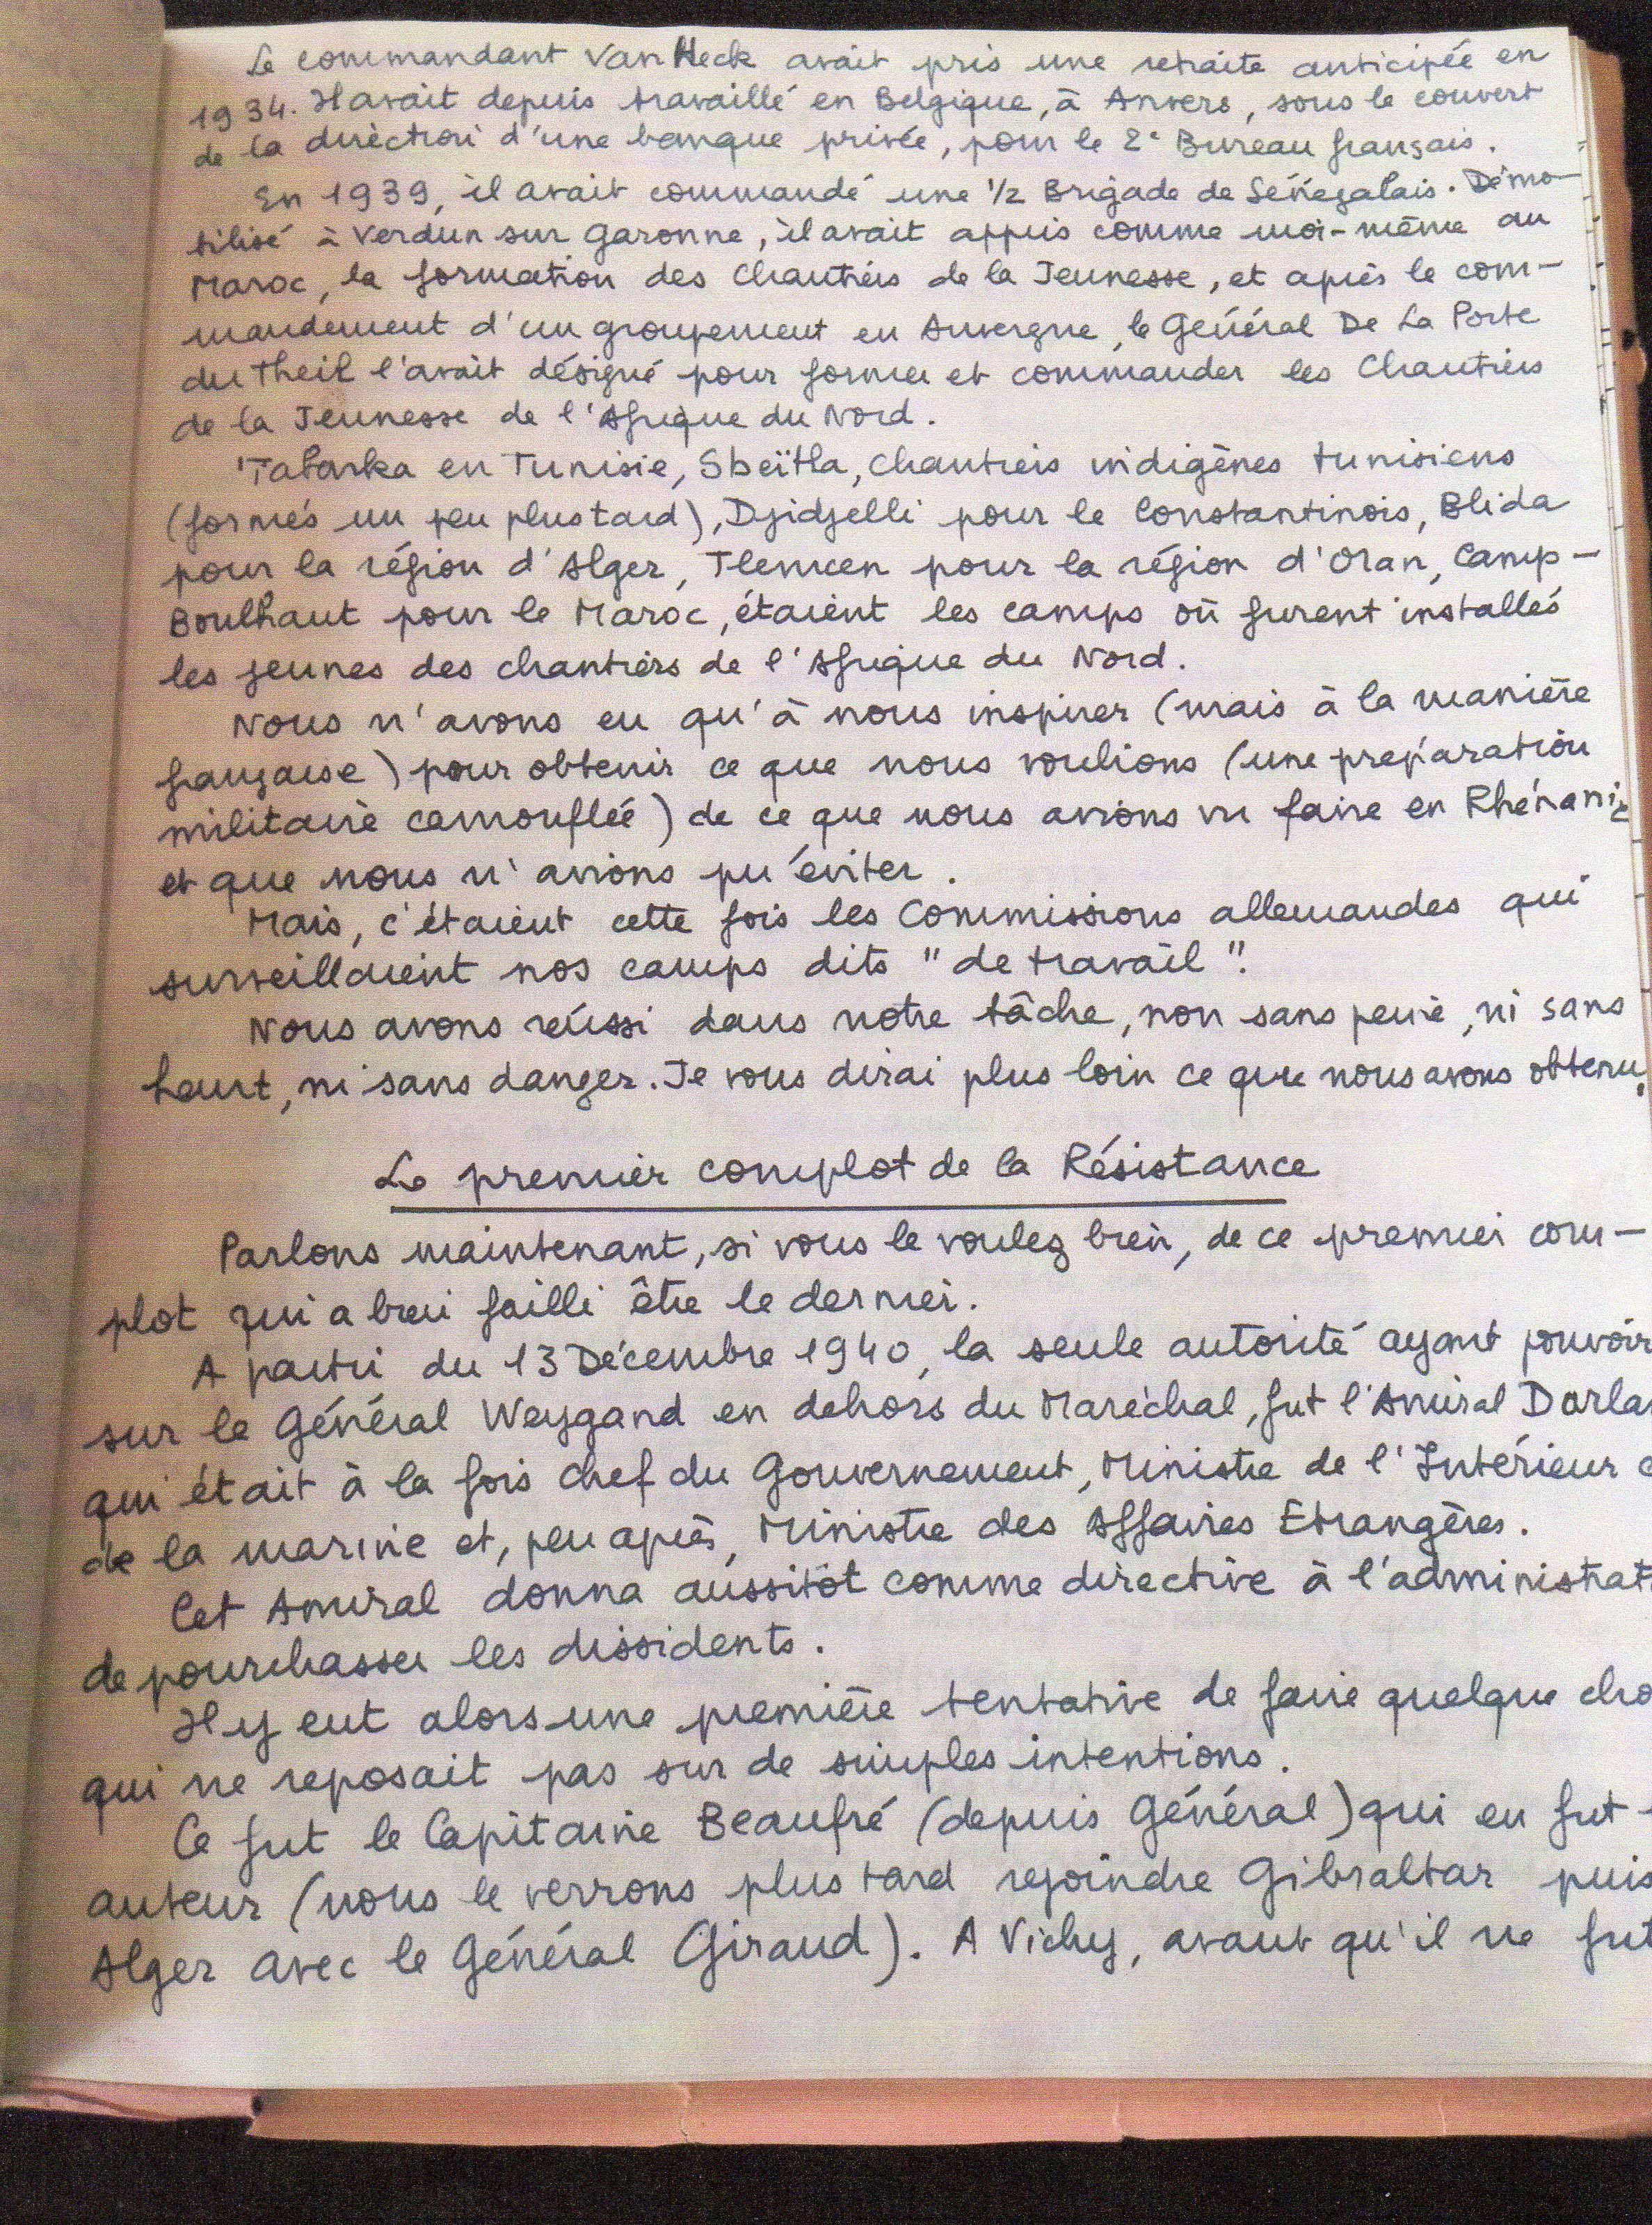 Le commandant Van Heck avait pris une retraite anticipée en
1934. Il avait depuis travaillé en Belgique, à Anvers, sous le couvert
de la direction d'une banque privée, pour le 2e Bureau français.
En 1939, il avait commandé une 1/2 Brigade de Sénégalais. Démo-
bilisé à Verdun sur Garonne, il avait appris comme moi-même au
Maroc, la formation des Chantiers de la Jeunesse, et après le com-
mandement d'un groupement en Auvergne, le Général De La Porte
du Theil l'avait désigné pour former et commander les Chantiers
de la Jeunesse de l'Afrique du Nord.
Tabarka en Tunisie, Sbeïtla, chantiers indigènes tunisiens
(formés un peu plus tard), Djidjelli pour le Constantinois, Blida
pour la région d'Alger, Tlemcen pour la région d'Oran, Camp-
Boulhaut pour le Maroc, étaient les camps où furent installés
les jeunes des chantiers de l'Afrique du Nord.
Nous n'avons eu qu'à nous inspirer (mais à la manière
française) pour obtenir ce que nous voulions (une préparation
militaire camouflée) de ce que nous avions vu faire en Rhénanie
et que nous n'avions pu éviter.
Mais, c'étaient cette fois les Commissions allemandes qui
surveillaient nos camps dits "de travail".
Nous avons réussi dans notre tâche, non sans peine, ni sans
heurt, ni sans danger. Je vous dirai plus loin ce que nous avons obtenu.
Le premier complot de la Résistance
Parlons maintenant, si vous le voulez bien, de ce premier com-
plot qui a bien failli être le dernier.
A partir du 13 Décembre 1940, la seule autorité ayant pouvoir
sur le Général Weygand en dehors du Maréchal, fut l'Amiral Darla
qui était à la fois chef du Gouvernement, Ministre de l'Intérieur
de la marine et, peu après, Ministre des Affaires Etrangères.
Cet Amiral donna aussitôt comme directive à l'administrat
de pourchasser les dissidents.
Il y eut alors une première tentative de faire quelque cho
qui ne reposait pas sur de simples intentions.
Ce fut le Capitaine Beaufré (depuis Général) qui en fut
auteur (nous le verrons plus tard rejoindre Gibraltar puis
Alger avec le Général Giraud). A Vichy, avant qu'il ne fut